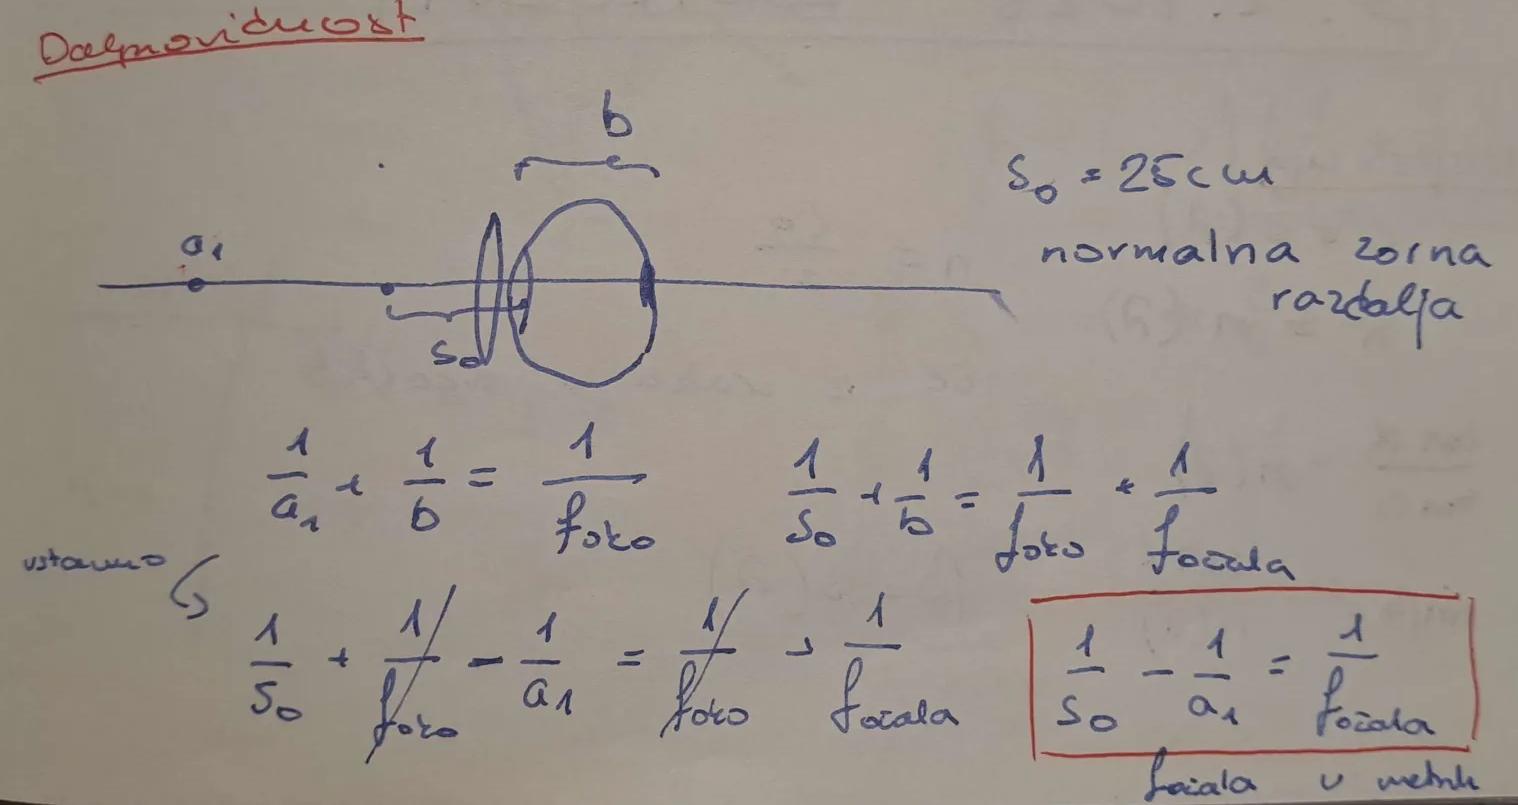 Daljnovidnost
b
s₀ = 25cm
a₁
normalna zorna
razdalja
s₀
1/a₁ + 1/b = 1/f oko
1/s₀ + 1/b = 1/f oko + 1/f očala
vstavimo
1/s₀ + 1/f oko - 1/a₁ = 1/f oko + 1/f očala
1/s₀ - 1/a₁ = 1/f očala
f očala v metrih